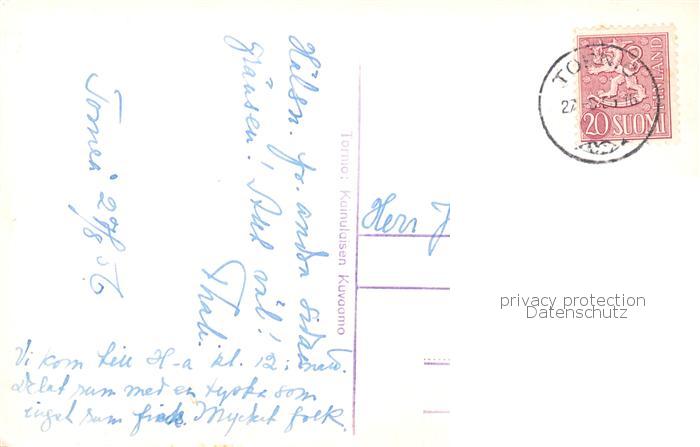 Torneå 27/8 56
Hälsn. fr. andra sidan
gränsen! Allt väl!
Vi kom till H-a kl. 12 i natt.
Delat rum med en tyska som
inget rum fick. Mycket folk.
Tornio: Kainulaisen Kuvaamo
Herr J
TORNIO
20 SUOMI
FINLAND
privacy protection
Datenschutz